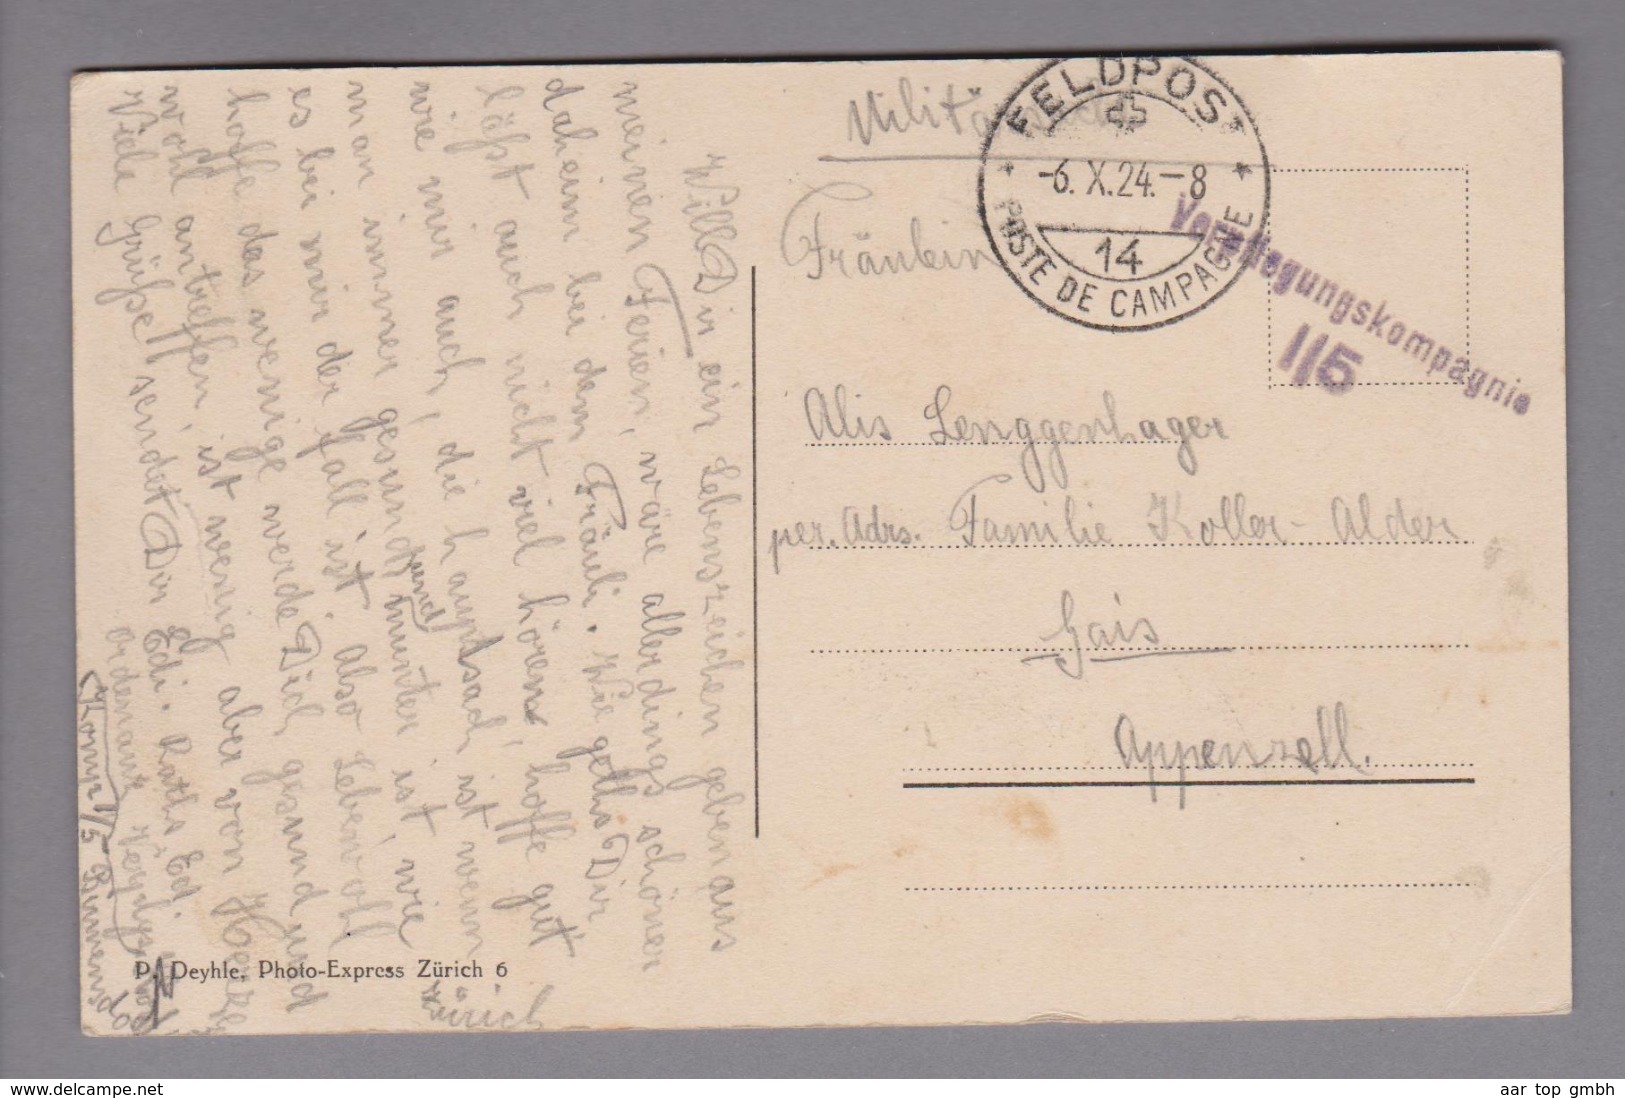 Will Dir ein Lebenszeichen geben aus
meinen Ferien, wäre allerdings schöner
daheim bei dem Fräuli. Wie geths Dir
läßt auch nicht viel hören, hoffe gut
wie mir auch, die hauptsach ist wenn
man immer gesund und munter ist, wie
es bei mir der fall ist. Also Lebwohl
hoffe das wenige werde Dich gesund und
wohl antreffen, ist wenig aber von Herz
Viele Grüße sendet Dir Edi.
Ordonanz
Komp I/5
Zürich
P. Deyhle, Photo-Express Zürich 6
Militär
FELDPOST
-6. X. 24.-8
14
POSTE DE CAMPAGNE
Verpflegungskompagnie
I/5
Fräulein
Alis Lenggenhager
per. Adrs. Familie Koller-Alder
Gais
Appenzell.
aar top gmbh
www.delcampe.net